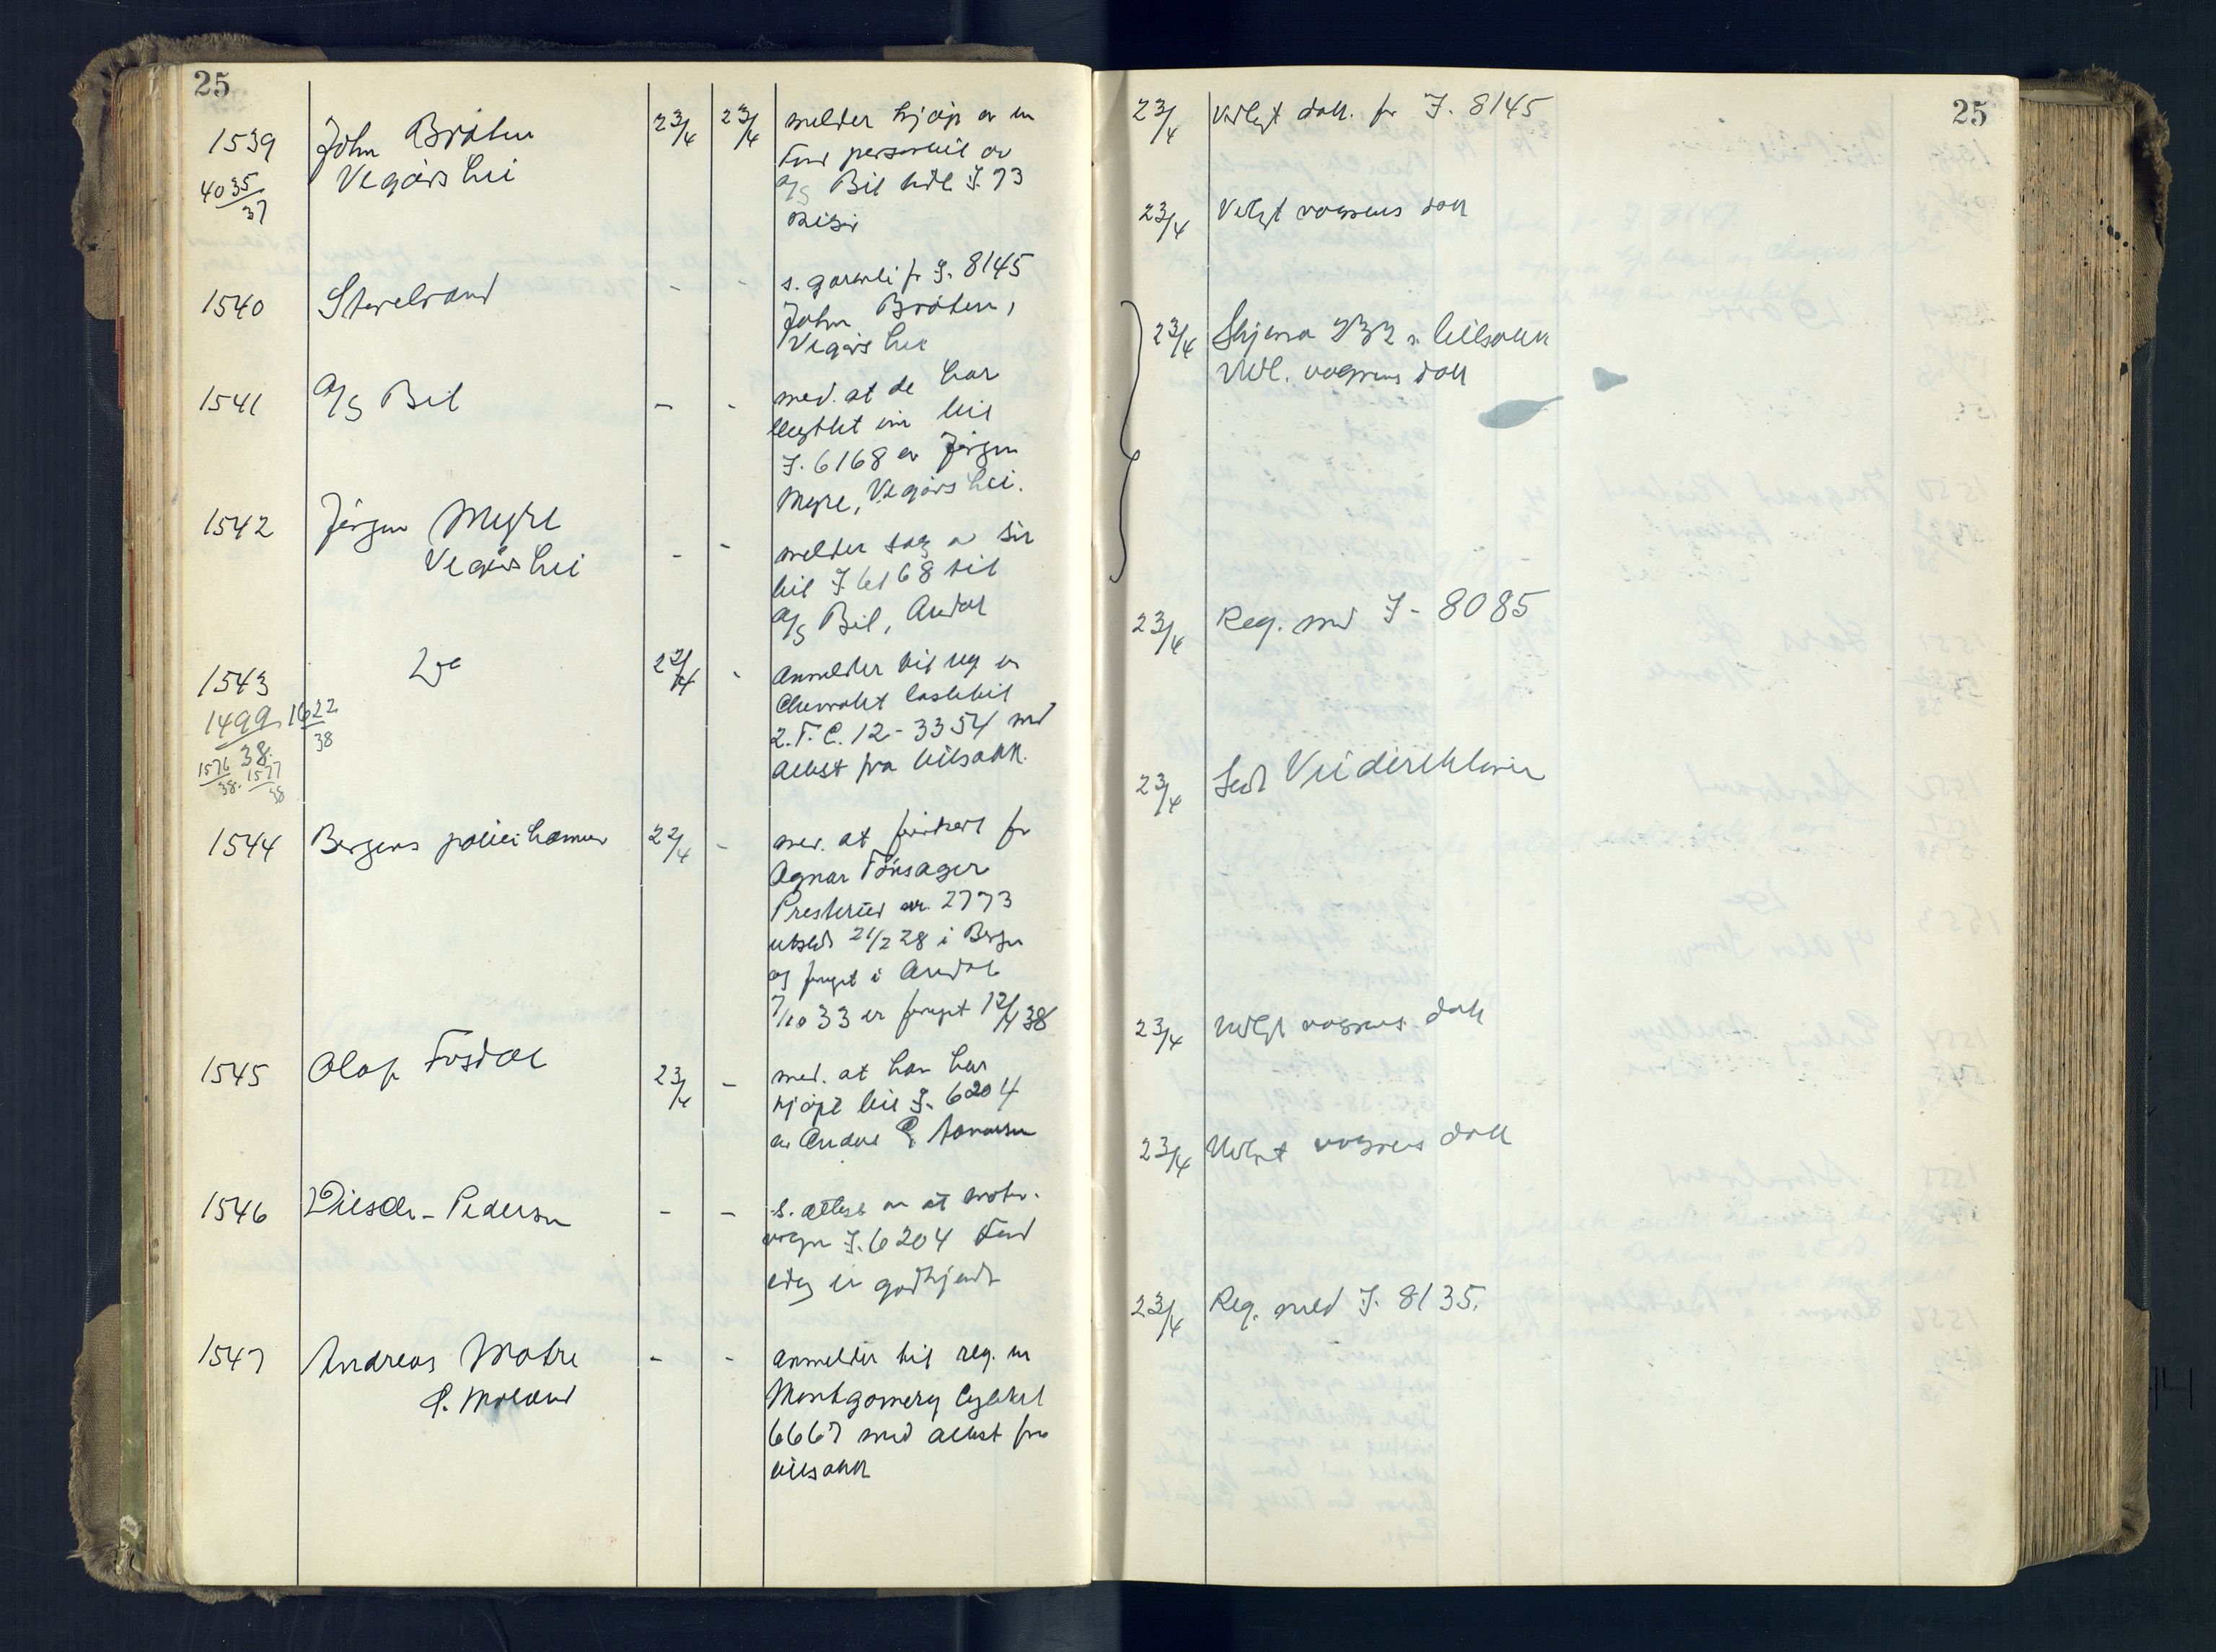 25
1539 John Bråten 23/4 23/4 melder kjøp av en
4035/37 Vegårshei Ford personbil av
A/S Bil vedl. I. 73
Risør
1540 Storebrand - - s. garanti for I. 8145
John Bråten,
Vegårshei
1541 A/S Bil - - med. at de har
bil
I. 6168 av Jørgen
Myre, Vegårshei.
1542 Jørgen Myre - - melder salg av sin
Vegårshei bil I 6168 til
A/S Bil, Arendal
1543 22/4 - Anmelder til reg. en
1499/38. 1622/38 Chevrolet lastebil
2.T.C. 12-3354 med
1576/38. 1577/38 attest fra bilsakk.
1544 Bergens politikammer 22/4 - med. at førerkort for
Agnar Tønsager
nr. 2773
utstedt 21/2 28 i Bergen
og fornyet i Arendal
7/10 33 er fornyet 12/4 38
1545 Olaf Fosdal 23/4 - med. at han har
kjøpt bil I. 6204
av
1546 Diesch-Pedersen - - s. attest om at motor-
vogn I. 6204 Ford
er godkjent
1547 Andreas Motre - - anmelder til reg. en
Ø. Moland Montgomery Cykkel
6667 med attest fra
bilsakk
25
23/4 Vedlagt dokk. for I. 8145
23/4 Vedlagt vognens dokk
23/4 Skjema til bilsakk
Vedl. vognens dokk
23/4 Reg. med I - 8085
23/4 Sedt Veidirektøren
23/4 Vedlagt vognens dokk
23/4 Vedlagt vognens dokk
23/4 Reg. med I. 8135.